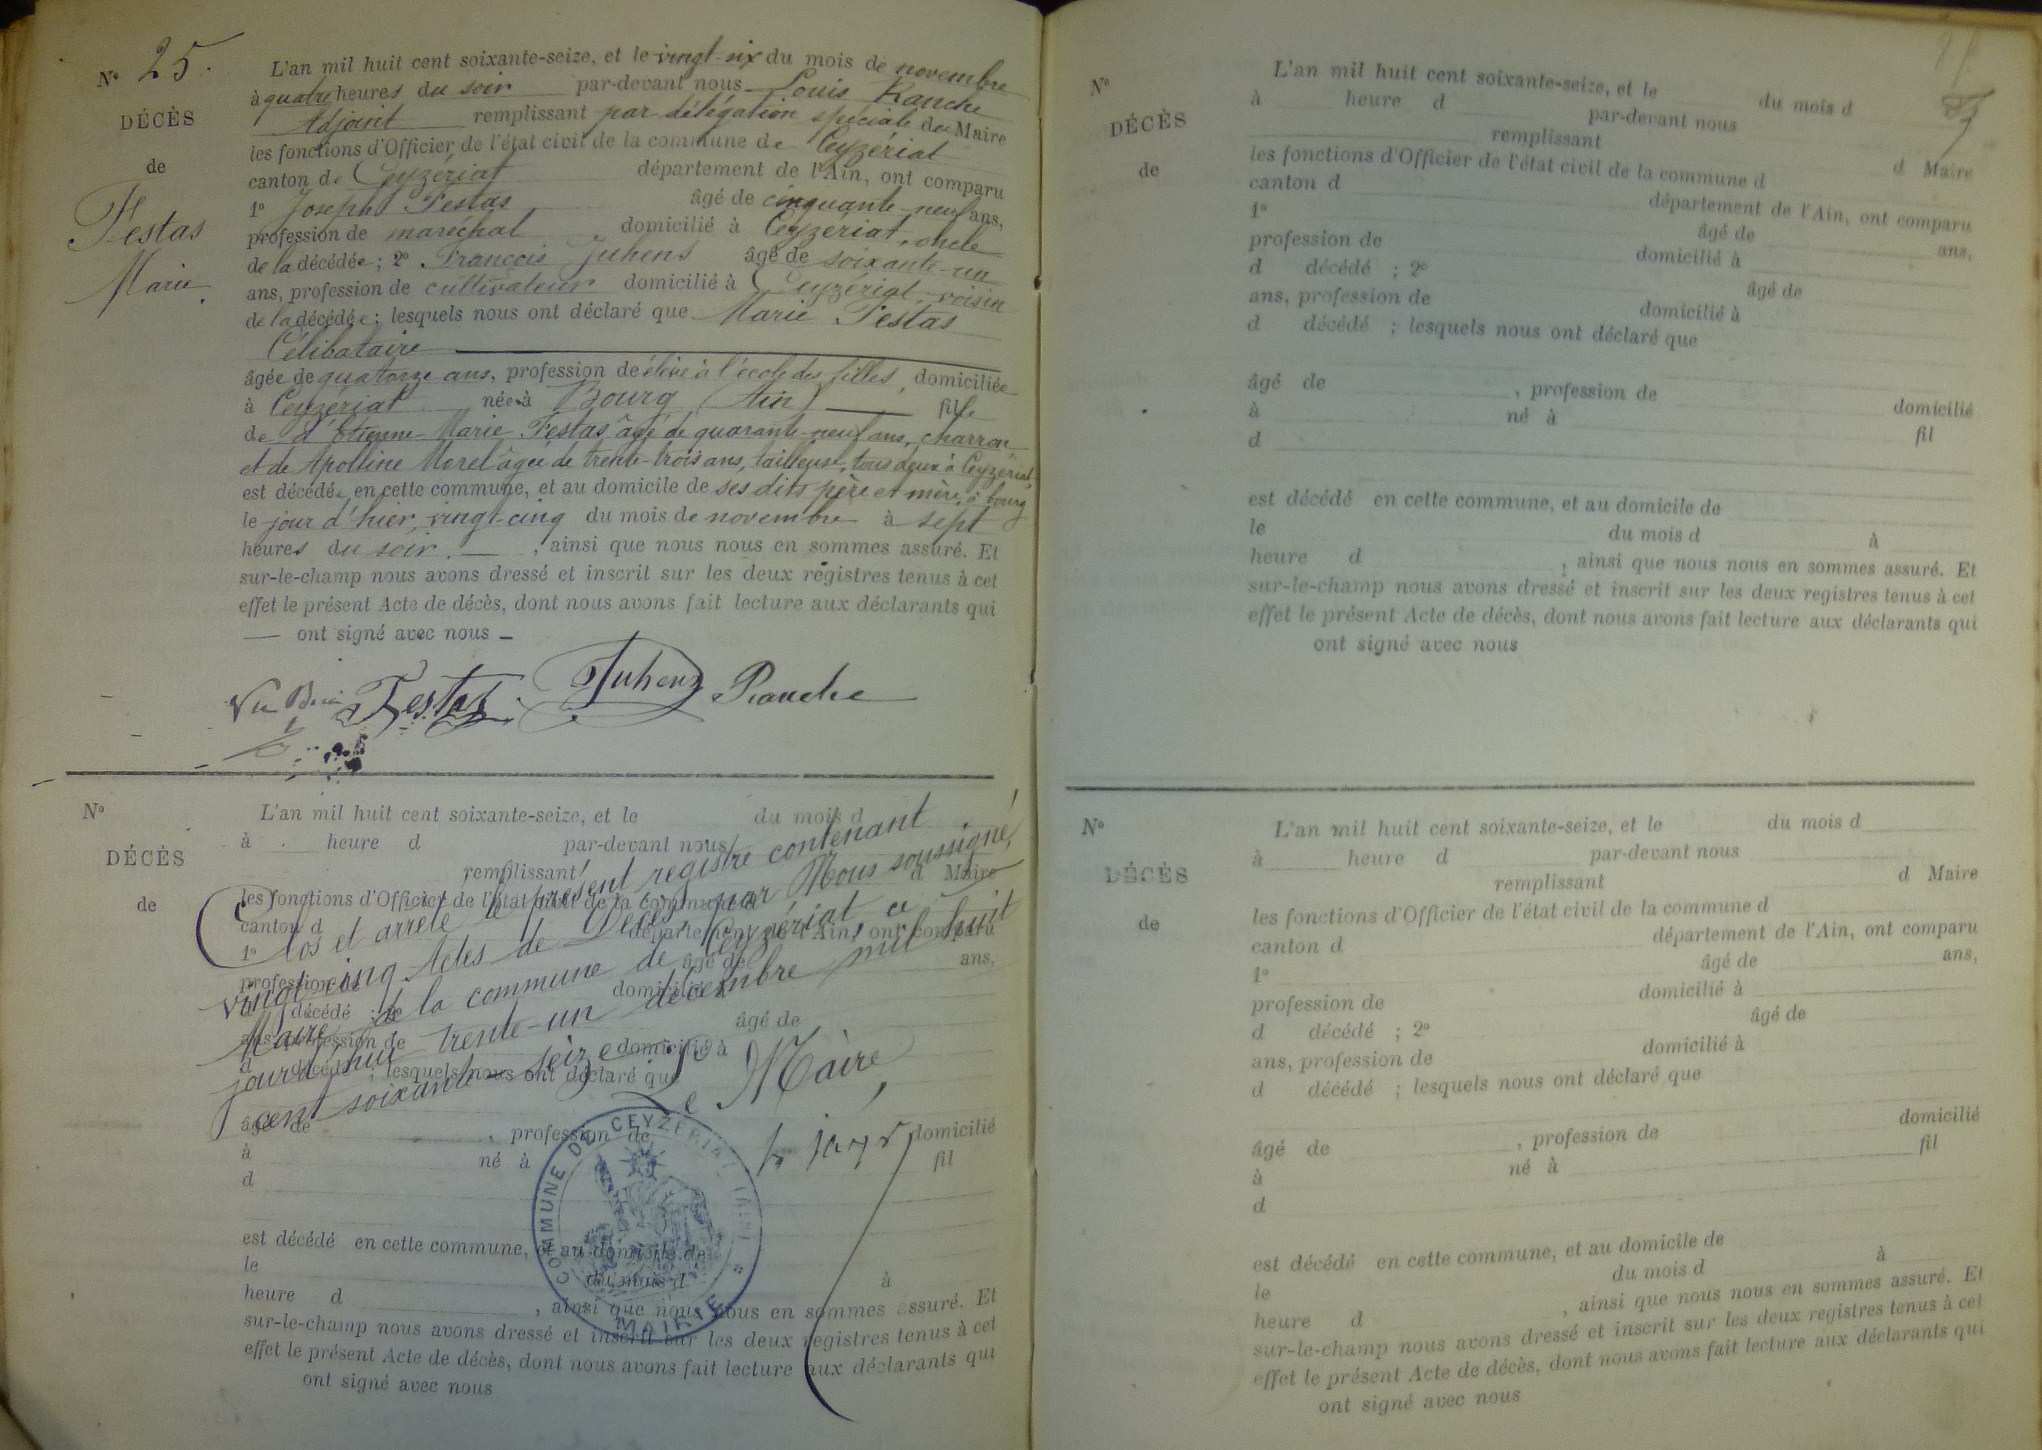 N° 25.
DÉCÈS
de
Festas
Marie
L'an mil huit cent soixante-seize, et le vingt-six du mois de novembre
à quatre heures du soir par-devant nous Louis
Adjoint remplissant par délégation spéciale du Maire
les fonctions d'Officier de l'état civil de la commune de Ceyzériat
canton de Ceyzériat département de l'Ain, ont comparu
1° Joseph Festas âgé de cinquante-neuf ans,
profession de maréchal, domicilié à Ceyzériat, oncle
de la décédée; 2° François Juhens âgé de soixante-un
ans, profession de cultivateur domicilié à Ceyzériat, voisin
de la décédée; lesquels nous ont déclaré que Marie Festas
Célibataire
âgée de quatorze ans, profession de élève à l'école des filles, domiciliée
à Ceyzériat née à Bourg (Ain) fille
de d'Etienne-Marie Festas âgé de quarante-neuf ans, charron
et de Apolline Morel âgée de trente-trois ans, tailleuse, tous deux à Ceyzériat,
est décédée en cette commune, et au domicile de ses dits père et mère, à bourg
le jour d'hier, vingt-cinq du mois de novembre à sept
heures du soir. , ainsi que nous nous en sommes assuré. Et
sur-le-champ nous avons dressé et inscrit sur les deux registres tenus à cet
effet le présent Acte de décès, dont nous avons fait lecture aux déclarants qui
ont signé avec nous
Festas Juhens
N°
DÉCÈS
de
L'an mil huit cent soixante-seize, et le du mois d
à heure d par-devant nous
remplissant d Maire
les fonctions d'Officier de l'état civil de la commune d
canton d département de l'Ain, ont comparu
1° âgé de ans,
profession de domicilié à
d décédé ; 2° âgé de
ans, profession de domicilié à
d décédé ; lesquels nous ont déclaré que
âgé de , profession de domicilié
à né à fil
d
est décédé en cette commune, et au domicile de
le du mois d à
heure d , ainsi que nous nous en sommes assuré. Et
sur-le-champ nous avons dressé et inscrit sur les deux registres tenus à cet
effet le présent Acte de décès, dont nous avons fait lecture aux déclarants qui
ont signé avec nous
Clos et arrêté le présent registre contenant
vingt-cinq Actes de Décès, par Nous soussigné,
Maire de la commune de Ceyzériat, ce
jourd'hui trente-un décembre mil huit
cent soixante-seize
Le Maire,
COMMUNE DE CEYZERIAT (AIN)
MAIRIE
N°
DÉCÈS
de
L'an mil huit cent soixante-seize, et le du mois d
à heure d par-devant nous
remplissant d Maire
les fonctions d'Officier de l'état civil de la commune d
canton d département de l'Ain, ont comparu
1° âgé de ans,
profession de domicilié à
d décédé ; 2° âgé de
ans, profession de domicilié à
d décédé ; lesquels nous ont déclaré que
âgé de , profession de domicilié
à né à fil
d
est décédé en cette commune, et au domicile de
le du mois d à
heure d , ainsi que nous nous en sommes assuré. Et
sur-le-champ nous avons dressé et inscrit sur les deux registres tenus à cet
effet le présent Acte de décès, dont nous avons fait lecture aux déclarants qui
ont signé avec nous
N°
DÉCÈS
de
L'an mil huit cent soixante-seize, et le du mois d
à heure d par-devant nous
remplissant d Maire
les fonctions d'Officier de l'état civil de la commune d
canton d département de l'Ain, ont comparu
1° âgé de ans,
profession de domicilié à
d décédé ; 2° âgé de
ans, profession de domicilié à
d décédé ; lesquels nous ont déclaré que
âgé de , profession de domicilié
à né à fil
d
est décédé en cette commune, et au domicile de
le du mois d à
heure d , ainsi que nous nous en sommes assuré. Et
sur-le-champ nous avons dressé et inscrit sur les deux registres tenus à cet
effet le présent Acte de décès, dont nous avons fait lecture aux déclarants qui
ont signé avec nous